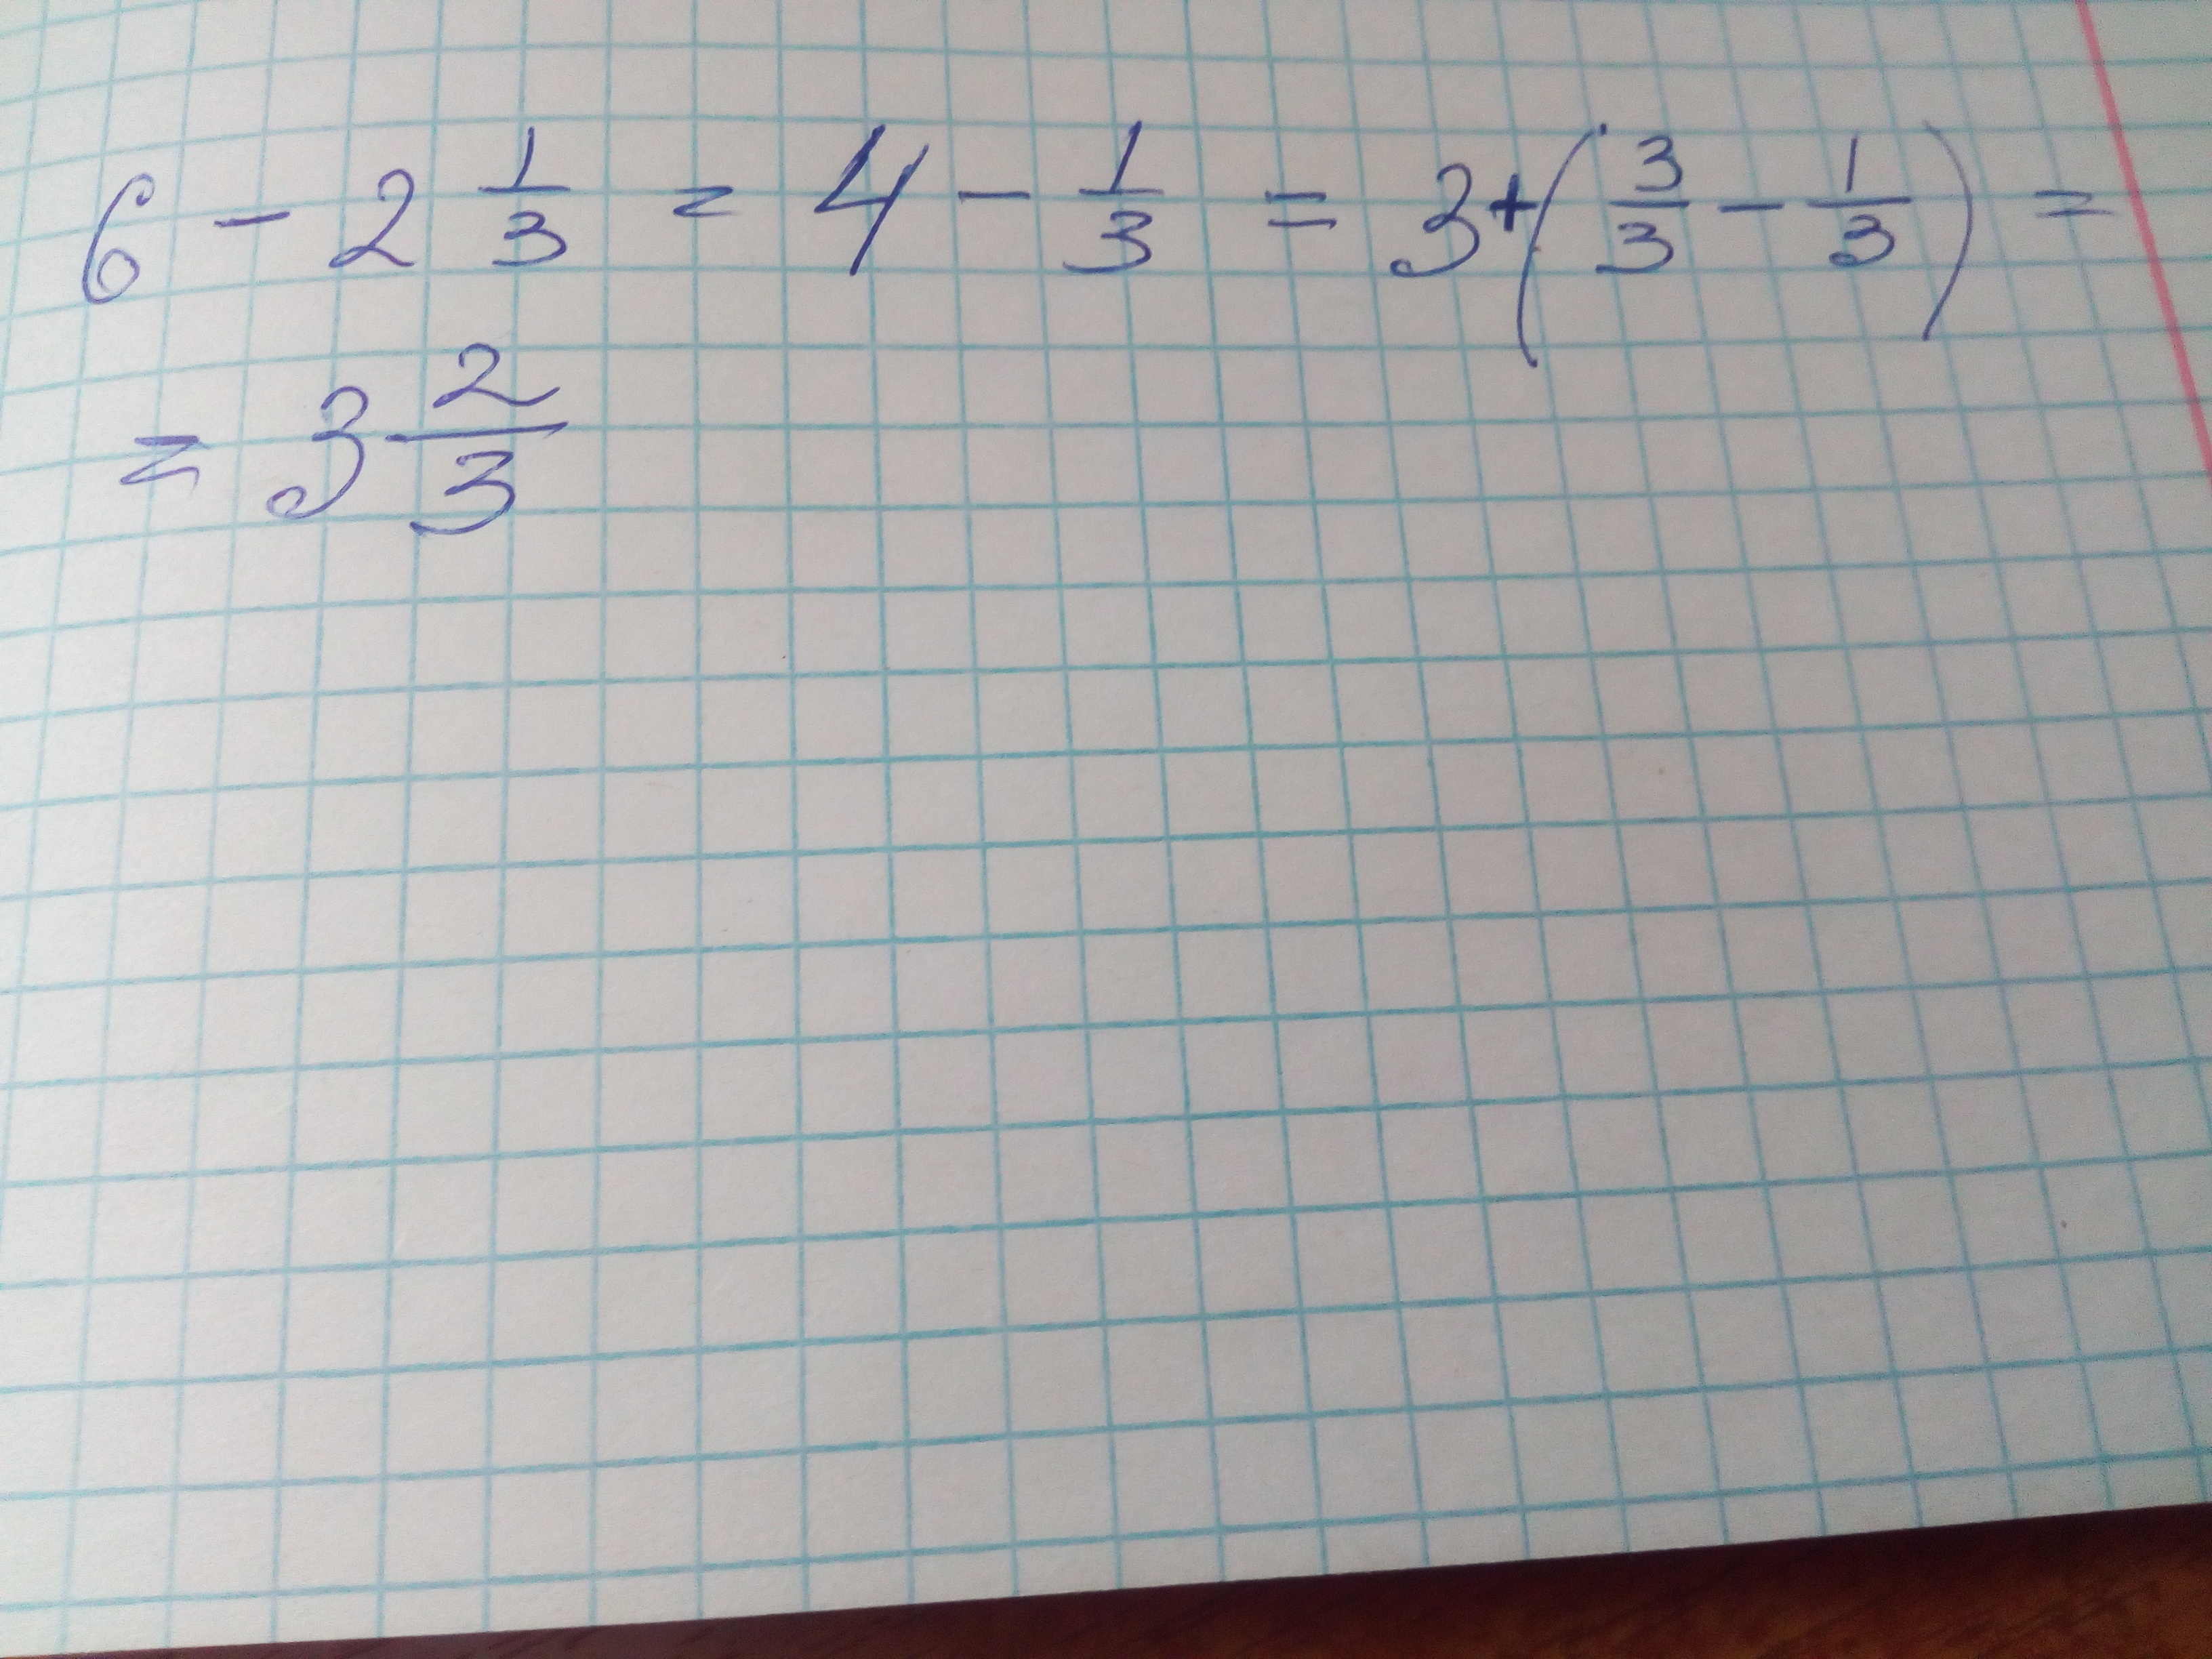 6 - 2 1/3 = 4 - 1/3 = 3 + (3/3 - 1/3) =
= 3 2/3